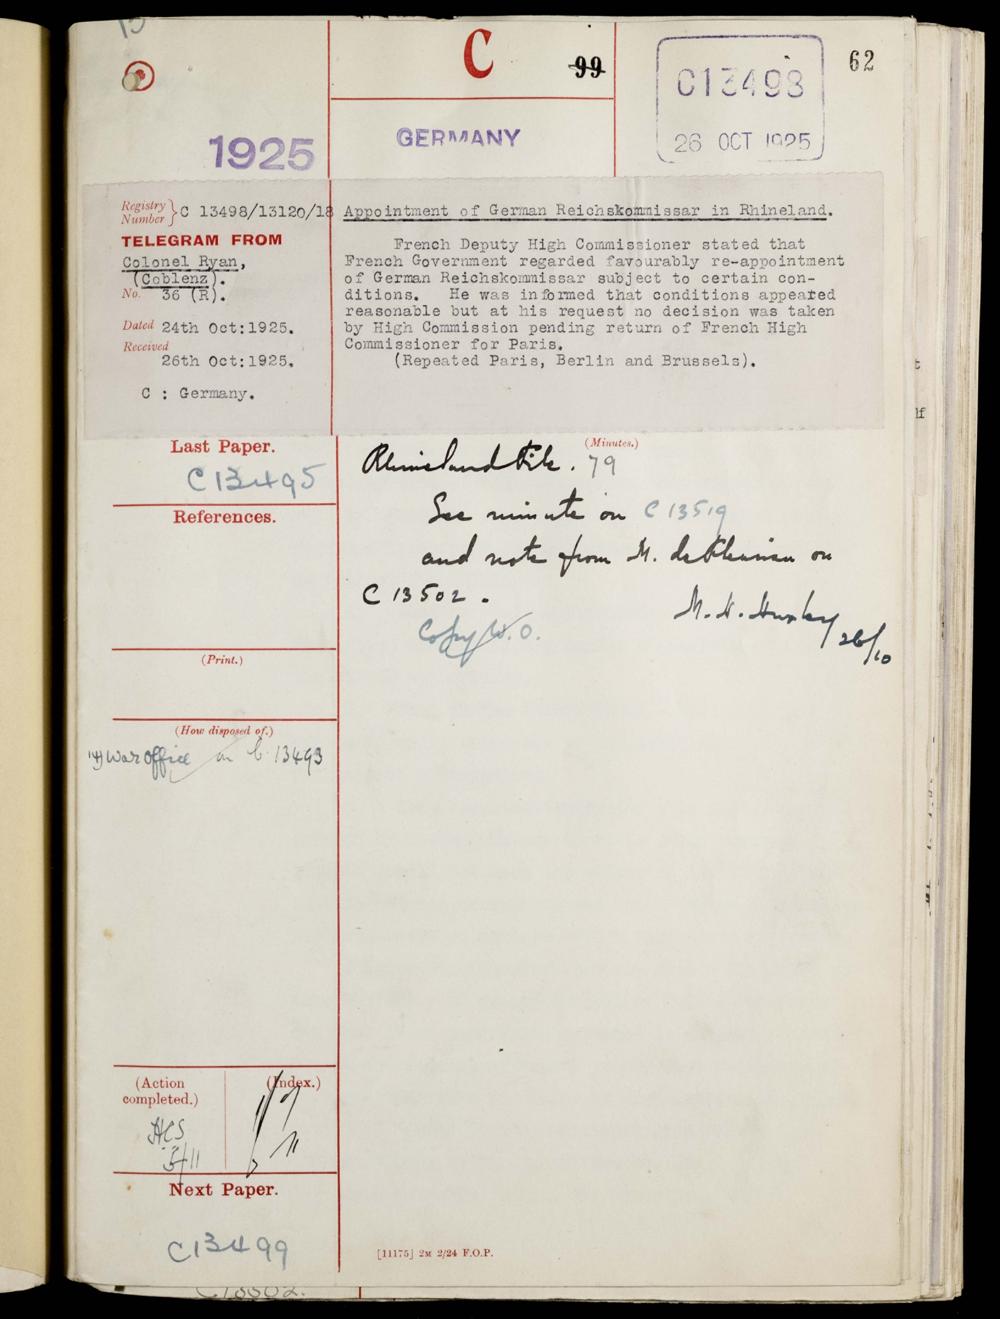 C
99
C13498
26 OCT 1925
62
1925
GERMANY
Registry Number } C 13498/13120/18
TELEGRAM FROM
Colonel Ryan,
(Coblenz).
No. 36 (R).
Dated 24th Oct:1925.
Received
26th Oct:1925.
C : Germany.
Appointment of German Reichskommissar in Rhineland.
French Deputy High Commissioner stated that
French Government regarded favourably re-appointment
of German Reichskommissar subject to certain con-
ditions. He was informed that conditions appeared
reasonable but at his request no decision was taken
by High Commission pending return of French High
Commissioner for Paris.
(Repeated Paris, Berlin and Brussels).
Last Paper.
C13495
References.
(Print.)
(How disposed of.)
War Office on C 13493
(Action
completed.)
(Index.)
HCS
3/11
Next Paper.
C13499
(Minutes.)
Rhineland file. 79
See minute on C 13519
and note from M. de Fleuriau on
C 13502.
M. H. Huxley
26/10
Copy W.O.
[11175] 2M 2/24 F.O.P.